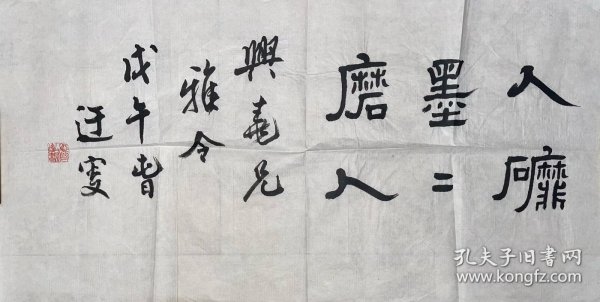 人磨
墨〻
磨人
興堯兄
雅令
戊午春
迂叟
孔夫子旧书网
www.kongfz.com